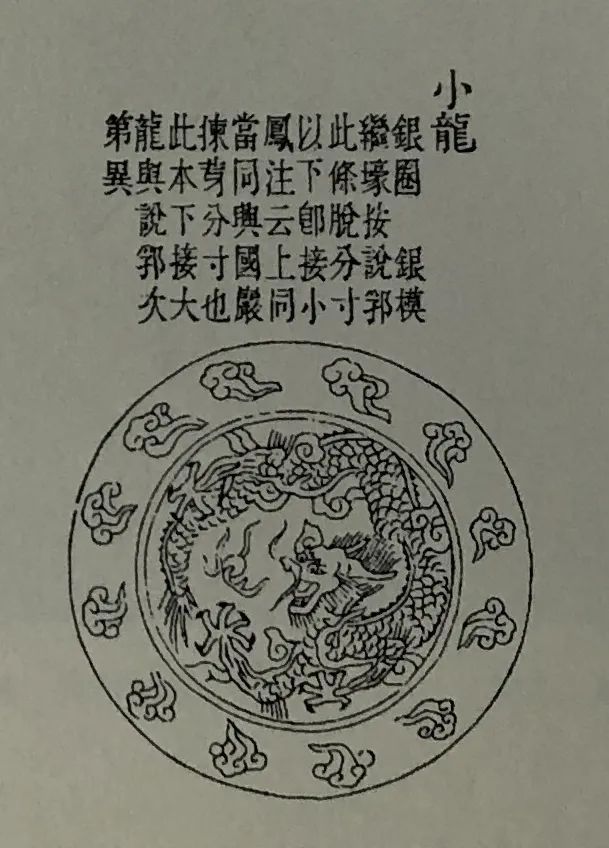 小龍
銀圈　銀模
繼壕按說郛
此條脫分寸
以下卽接小
鳳注云上同
當同與國嚴
揀芽分寸也
此本下接大
龍與說郛次
第異